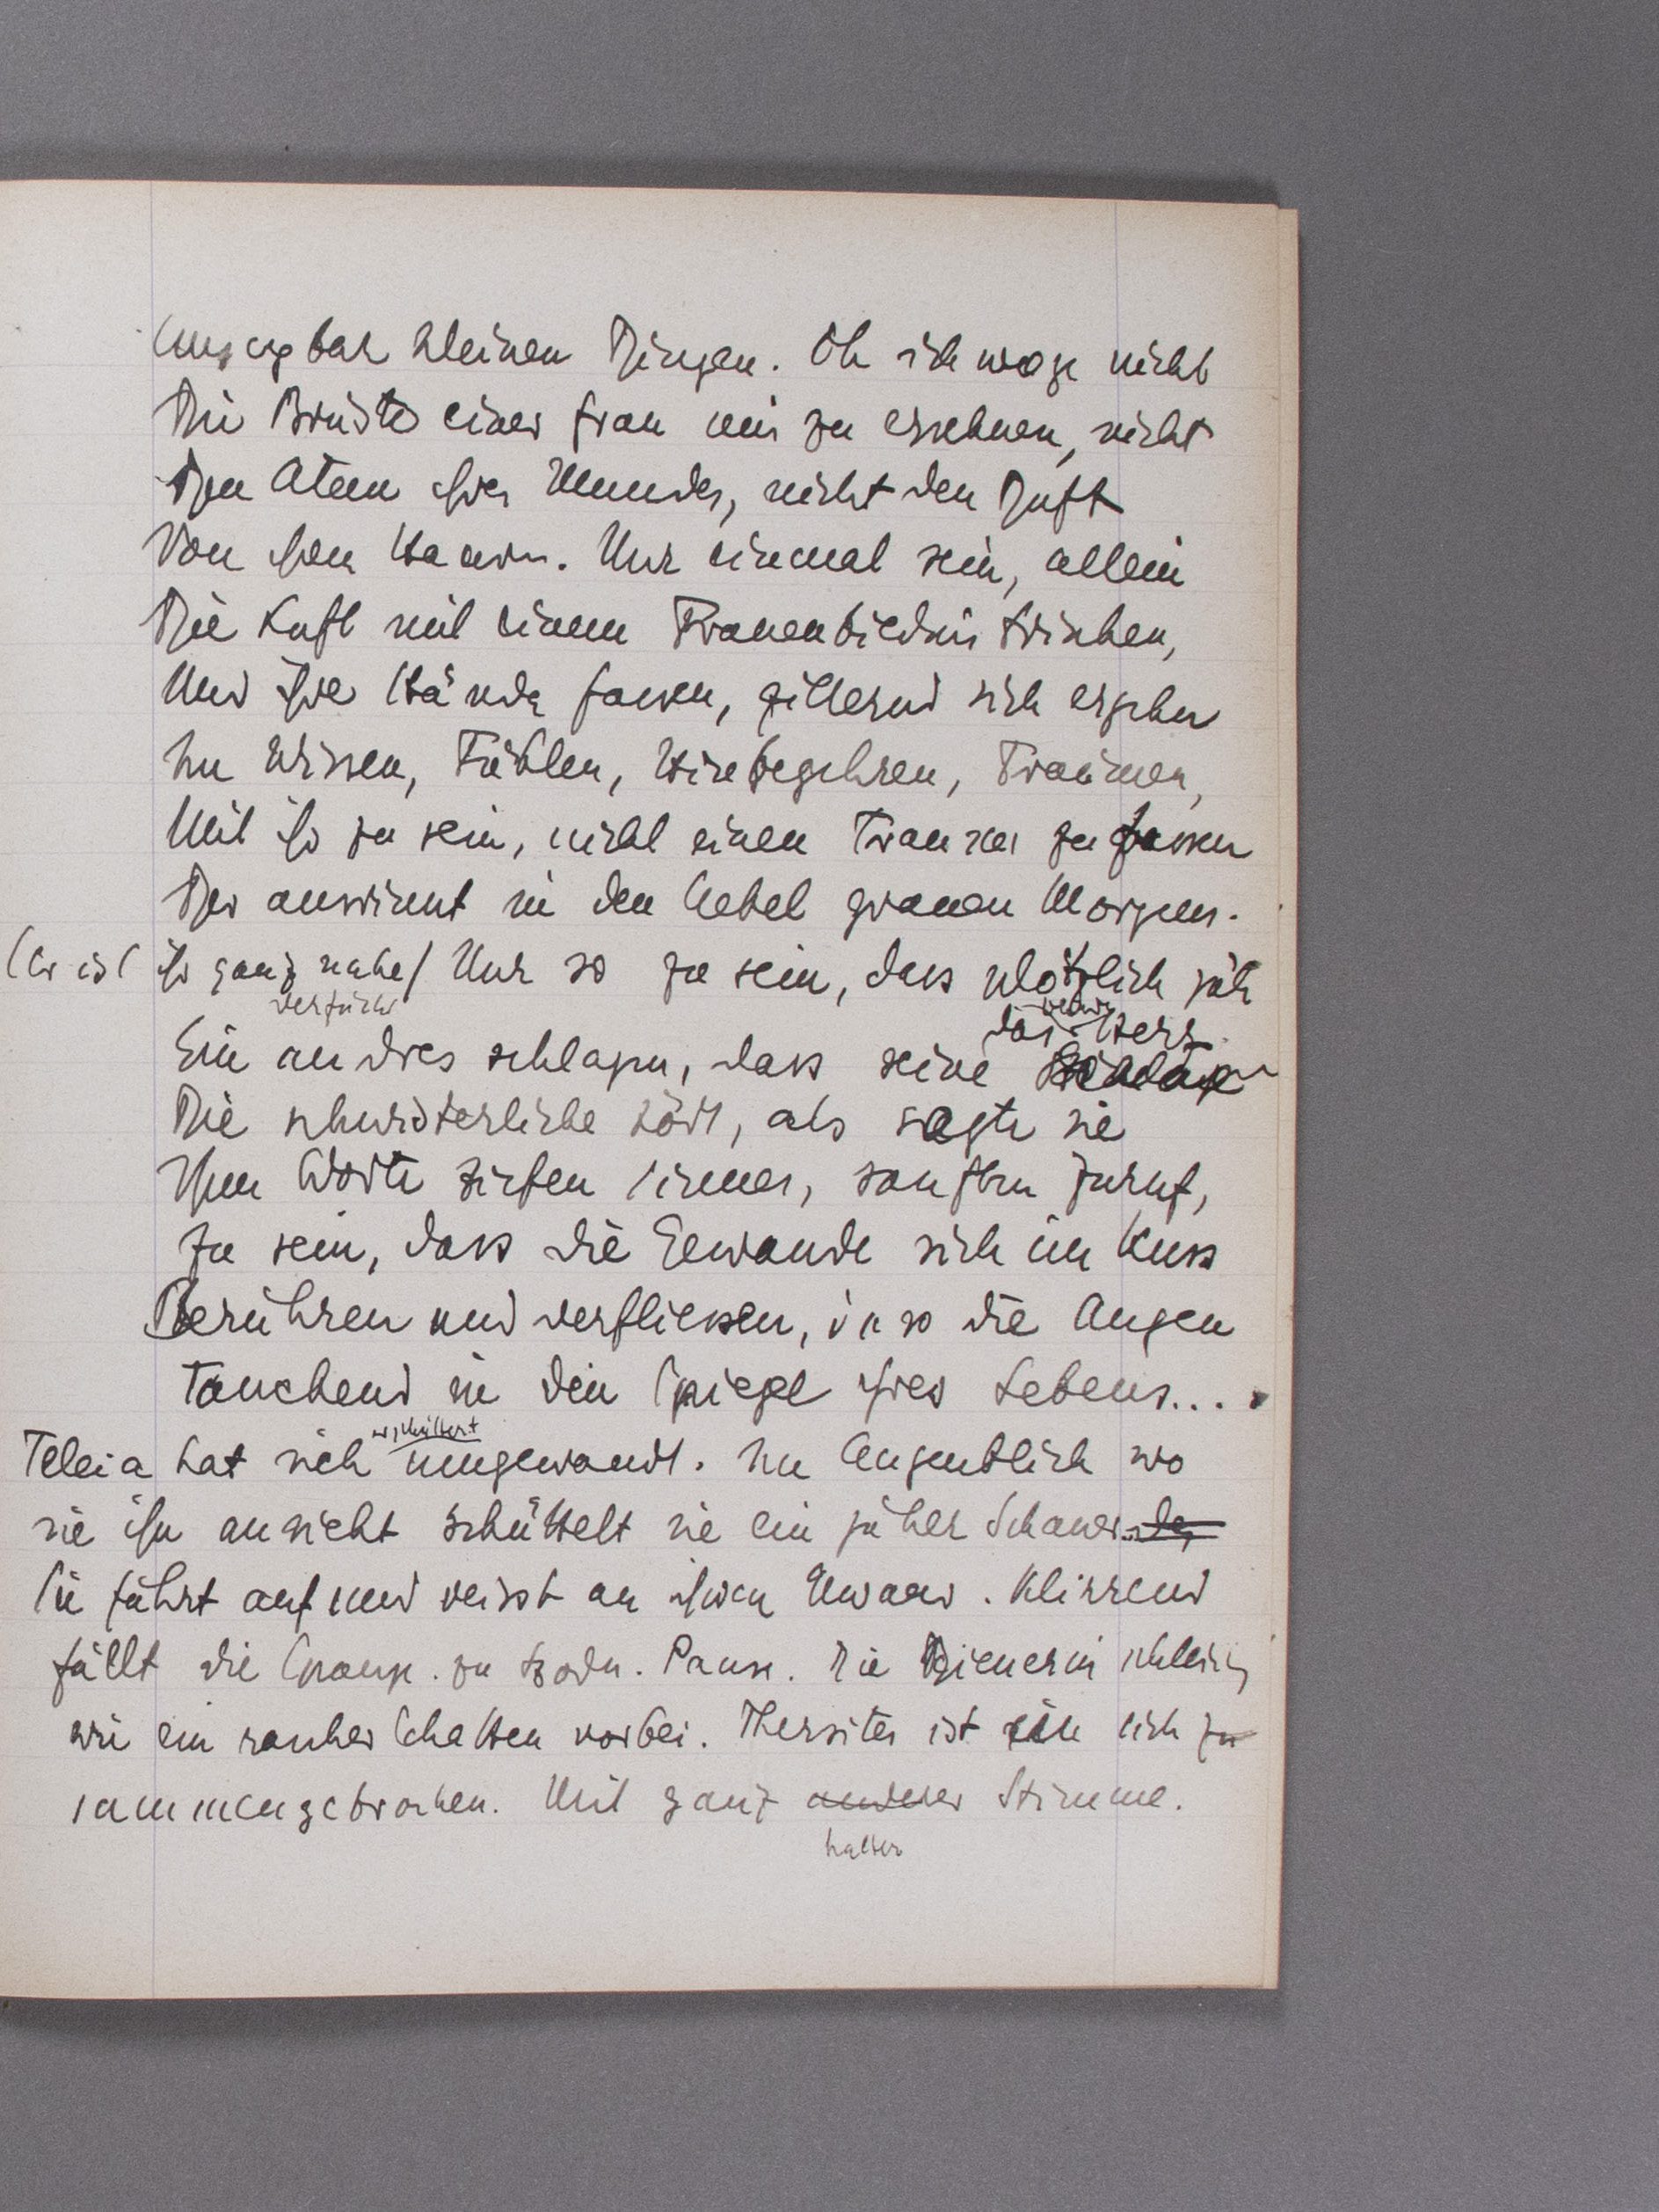 Unsagbar kleinen Dingen. Oh ich wage nicht
Die Brüste einer Frau mir zu ersehnen, nicht
Den Atem ihres Mundes, nicht den Duft
Von ihren Haaren. Nur einmal sein, allein
Die Luft mit einem Frauenbildnis trinken,
Und ihre Hände fassen, zitternd sich ergeben
Im Wissen, Fühlen, Hinbegehren, Träumen,
Mit ihr zu sein, nicht einen Traum zu fassen
Der ausrinnt in den Nebel grauen Morgens.
(Er ist ihr ganz nahe) Nur so zu sein, dass plötzlich jäh
verzückt
Ein andres schlagen, dass seine das Herz
Die schwisterliche hört, als sagte sie
Ihm Worte tiefen Sinnes, sanften Zuruf,
Zu sein, dass die Gewande sich im Kuss
Berühren und verfliessen, so die Augen
Tauchend in den Spiegel ihres Lebens...
Teleia hat sich erschüttert umgewandt. Im Augenblick wo
sie ihn ansieht schüttelt sie ein jäher Schauer.
Sie fährt auf und reisst an ihrem Gewand. Klirrend
fällt die Spange zu Boden. Pause. Die Dienerin schleicht
wie ein rauher Schatten vorbei. Thersites ist in sich zu
sammengebrochen. Mit ganz anderer Stimme.